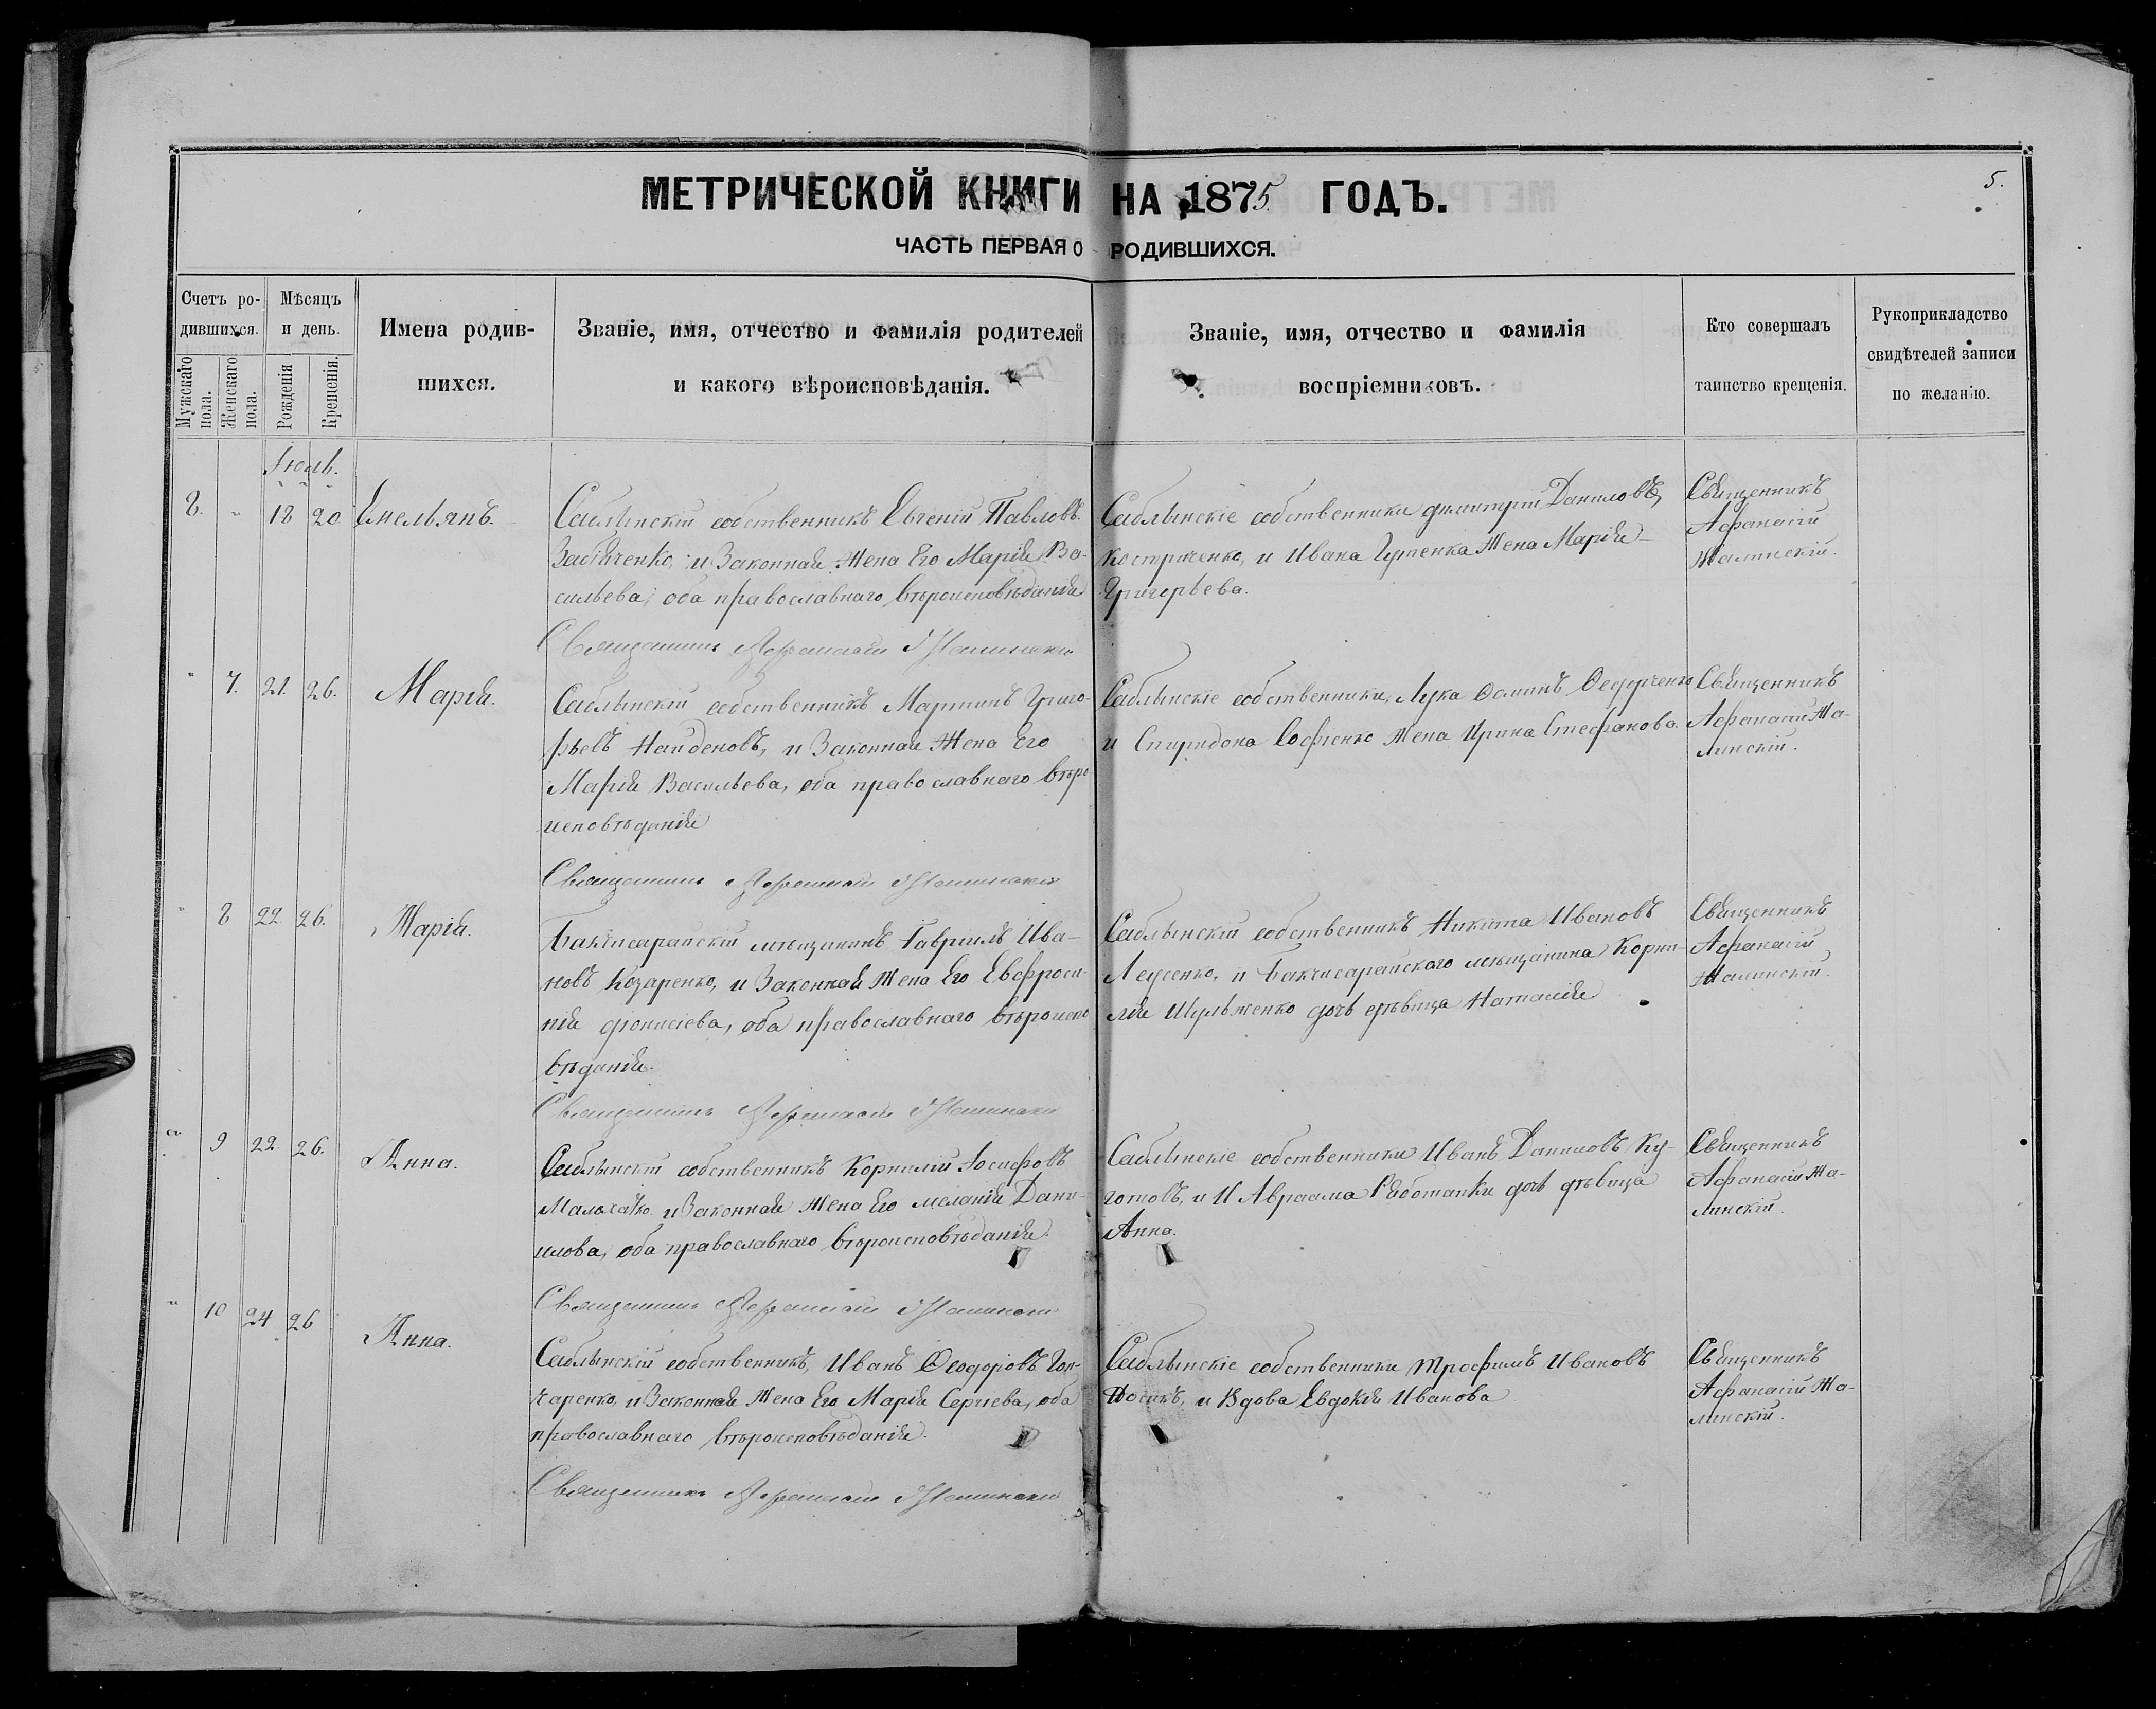 5.
МЕТРИЧЕСКОЙ КНИГИ НА 1875 ГОДЪ.
ЧАСТЬ ПЕРВАЯ О РОДИВШИХСЯ.
Счетъ ро-
дившихся.
Мужскаго пола.
Женскаго пола.
Мѣсяцъ
и день.
Рожденія
Крещенія.
Имена родив-
шихся.
Званіе, имя, отчество и фамилія родителей
и какого вѣроисповѣданія.
Званіе, имя, отчество и фамилія
воспріемниковъ.
Кто совершалъ
таинство крещенія.
Рукоприкладство
свидѣтелей записи
по желанію.
Іюль.
8. " 18 20 Емельянъ.
Саблынскій собственникъ Евгеній Павловъ
и Законная Жена Его Марія Ва-
сильева, оба православнаго вѣроисповѣданія
Священникъ Афанасій Жалинскій
Саблынскіе собственники Димитрій Даниловъ
и Ивана Жена Марія
Григорьева.
Священникъ
Афанасій
Жалинскій.
" 7. 21. 26. Марія.
Саблынскій собственникъ Мартинъ Григо-
рьевъ Найденовъ, и Законная Жена Его
Марія Васильева, оба православнаго вѣро-
исповѣданія
Священникъ Афанасій Жалинскій
Саблынскіе собственники, Лука Ѳоминъ Ѳедорченко
и Спиридона Софіенко Жена Ирина Стефанова.
Священникъ
Афанасій Жа-
линскій.
" 8 22. 26. Марія.
Бакчисарайскій мѣщанинъ Гавріилъ Ива-
новъ Козаренко, и Законная Жена Его Евфроси-
нія Діонисіева, оба православнаго вѣроиспо
вѣданія.
Священникъ Афанасій Жалинскій
Саблынскій собственникъ Никита Ивановъ
и Бакчисарайскаго мѣщанина Корни-
лія Шульженко дочь дѣвица Наталія
Священникъ
Афанасій
Жалинскій.
" 9 22. 26. Анна.
Саблынскій собственникъ Корнилій Іосифовъ
и Законная Жена Его Меланія Дани-
илова, оба православнаго вѣроисповѣданія.
Священникъ Афанасій Жалинскій
Саблынскіе собственники Иванъ Даниловъ Ку-
готовъ, и И Авраама Работапки дочь дѣвица
Анна.
Священникъ
Афанасій Жа-
линскій.
" 10 24 26 Анна.
Саблынскій собственникъ, Иванъ Ѳеодоровъ Гон-
чаренко, и Законная Жена Его Марія Сергіева, оба
православнаго вѣроисповѣданія.
Священникъ Афанасій Жалинскій
Саблынскіе собственники Трофимъ Ивановъ
и Вдова Евдокія Иванова
Священникъ
Афанасій Жа-
линскій.